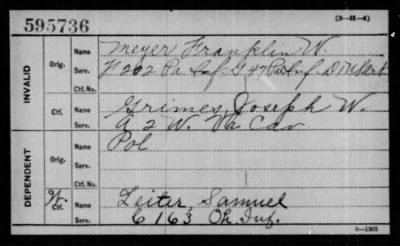 595736
(3-H-4)
INVALID
Orig.
Name
Meyer Franklin W.
Serv.
H 202 Pa. Inf. G 47 Pa Inf.
Ctf. No.
Ctf.
Name
Grimes, Joseph W.
Serv.
A 2 W. Va Cav
DEPENDENT
Orig.
Name
Pol
Serv.
Ctf. No.
W.
Ctf.
Name
Leiter, Samuel
Serv.
C 163 Oh. Inf.